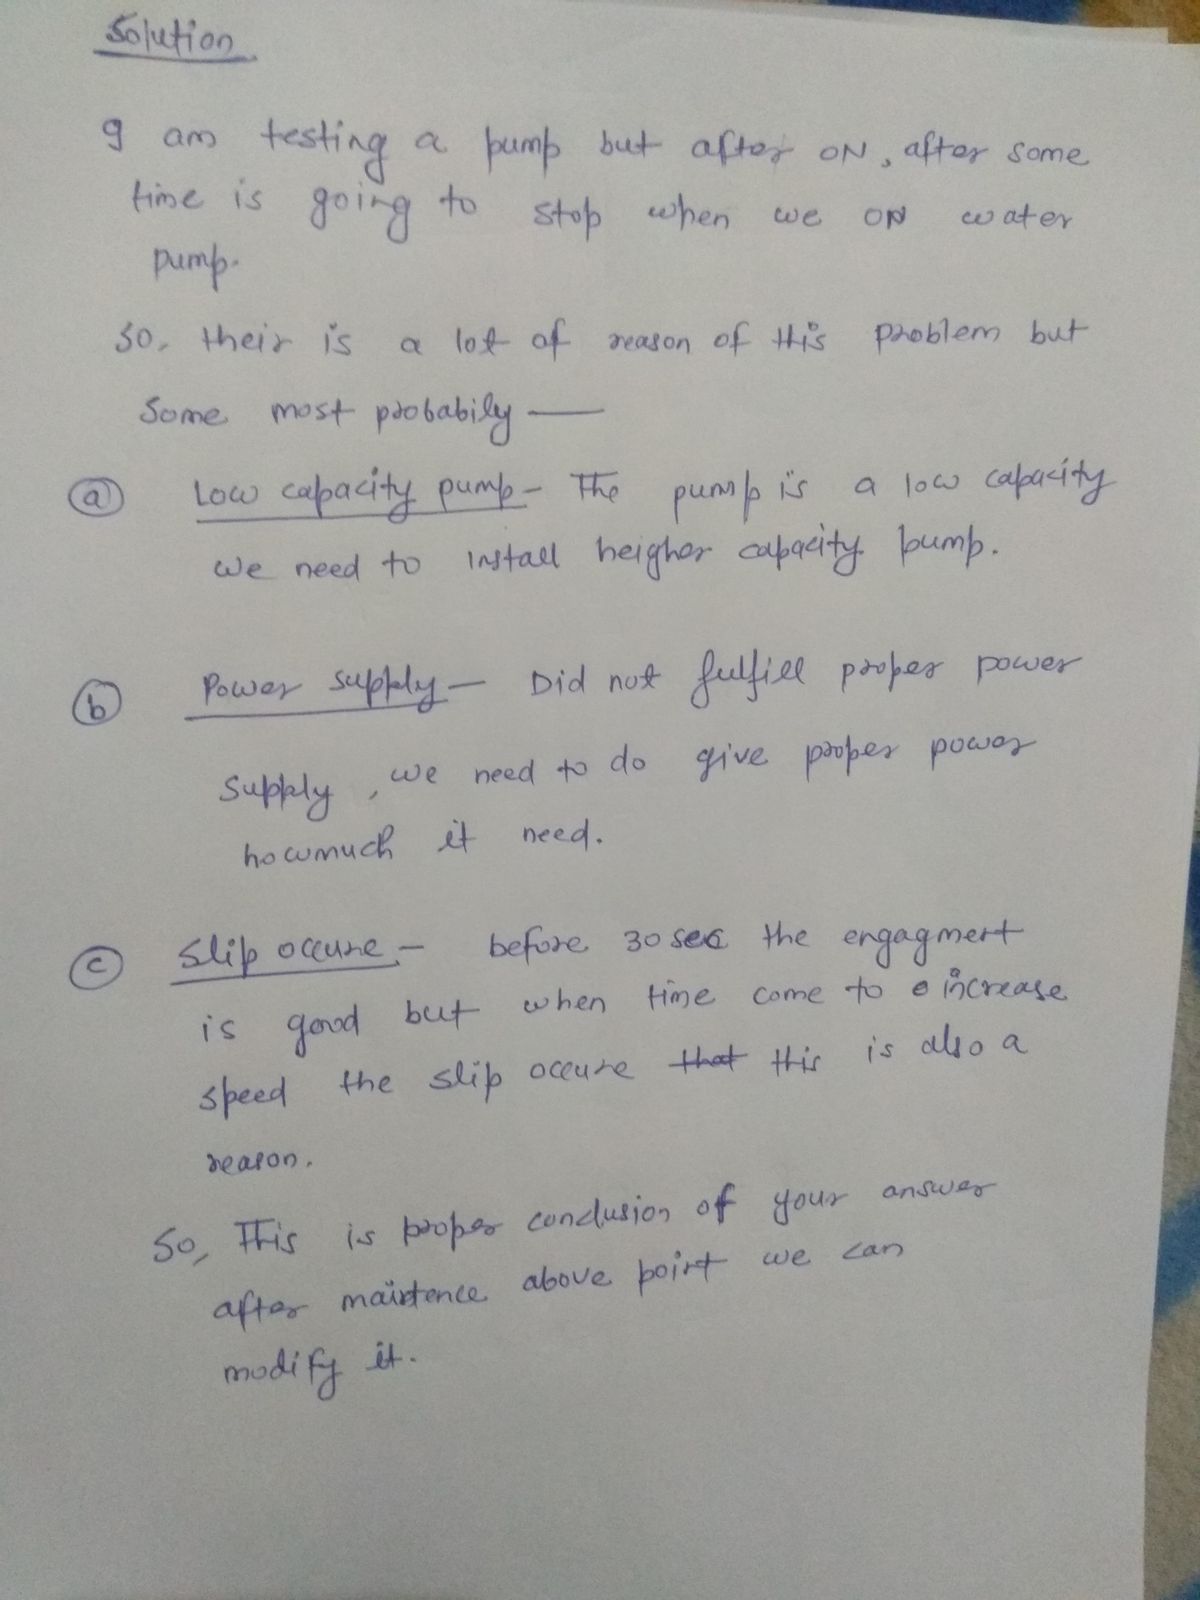 Solution
I am testing a pump but after ON, after some
time is going to stop when we ON water
pump.
So, their is a lot of reason of this problem but
Some most probabily —
(a) Low capacity pump - The pump is a low capacity
we need to install heigher capacity pump.
(b) Power supply - Did not fulfill proper power
supply, we need to do give proper power
howmuch it need.
(c) Slip occure - before 30 sec the engagment
is good but when time come to increase
speed the slip occure that this is also a
reason.
So, This is proper conclusion of your answer
after maintence above point we can
modify it.